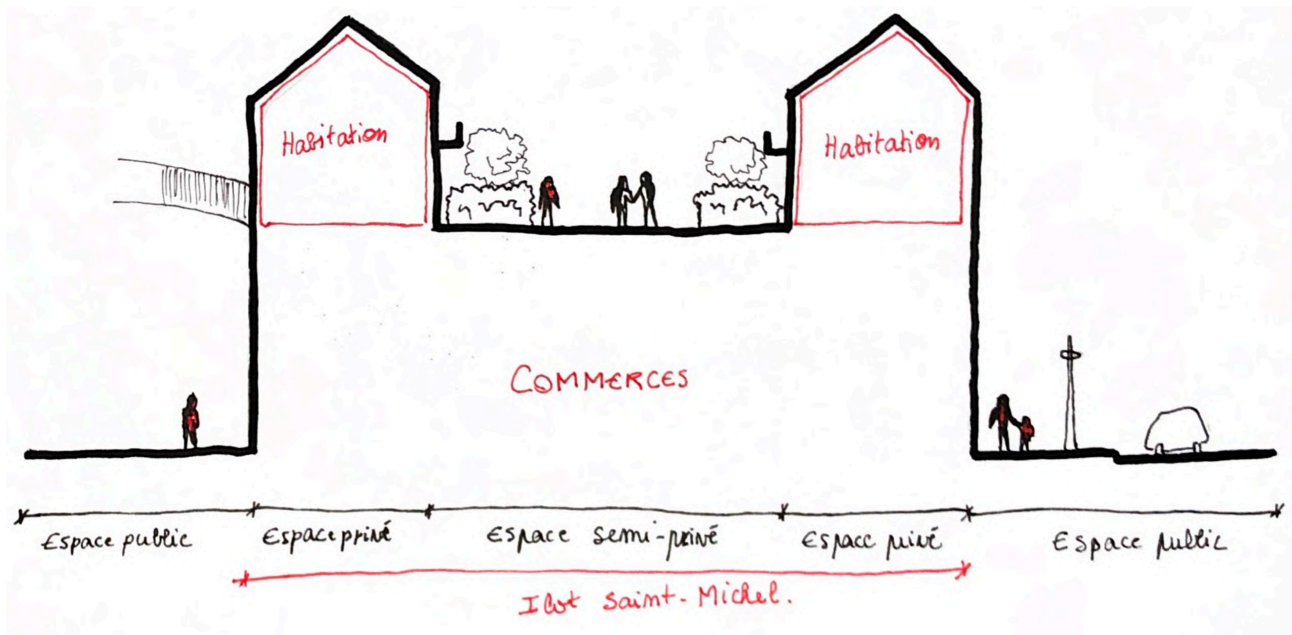 Habitation
Habitation
COMMERCES
Espace public
Espace privé
Espace semi-privé
Espace privé
Espace public
Ilot Saint-Michel.